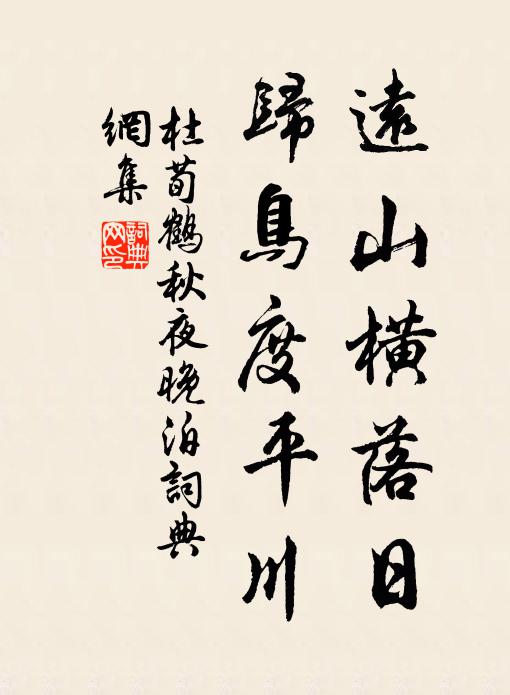 遠山橫落日
歸鳥度平川
杜荀鶴秋夜晚泊詞典
網集
詞典
网印